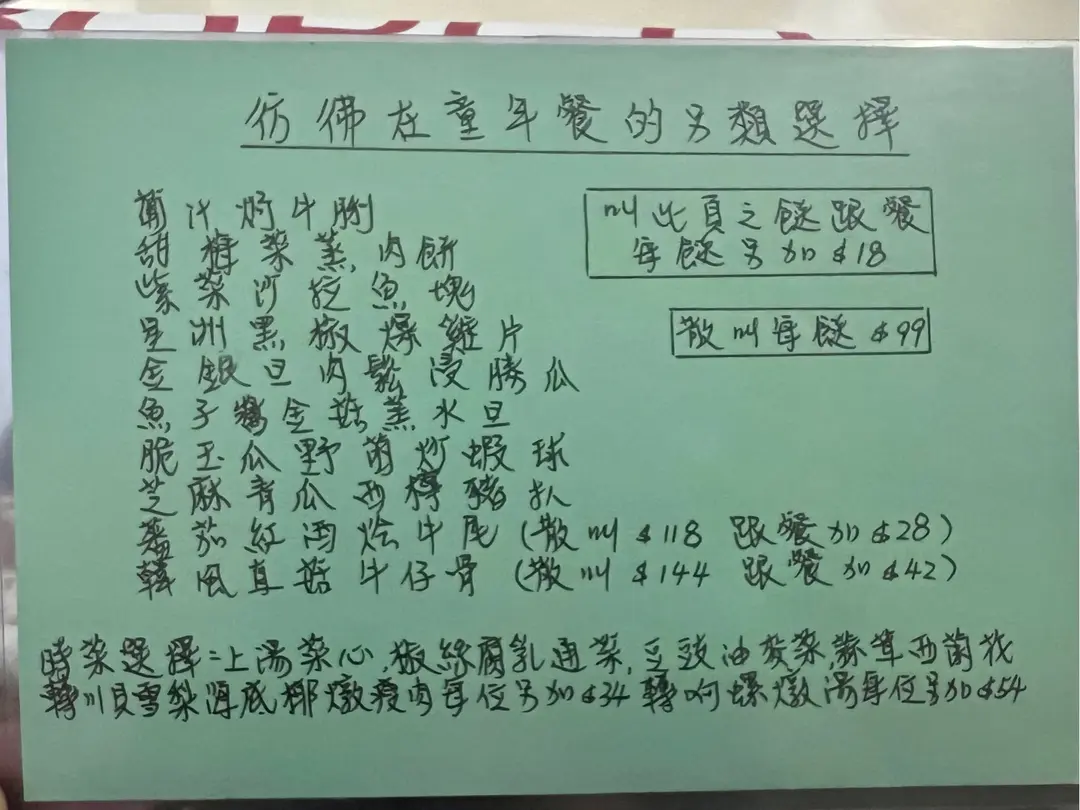 彷彿在童年餐的另類選擇
叫此頁之餸跟餐
每餸另加$18
散叫每餸$99
葡汁焗牛脷
甜梅菜蒸肉餅
紫菜沙拉魚塊
星洲黑椒爆雞片
金銀旦肉鬆浸勝瓜
魚子醬金菇蒸水旦
脆玉瓜野菌炒蝦球
芝麻青瓜西檸豬扒
蕃茄紅酒烩牛尾(散叫$118 跟餐加$28)
韓風直菇牛仔骨(散叫$144 跟餐加$42)
時菜選擇:上湯菜心,椒絲腐乳通菜,豆豉油麥菜,蒜茸西蘭花
轉川貝雪梨海底椰燉瘦肉每位另加$34 轉响螺燉湯每位另加$54